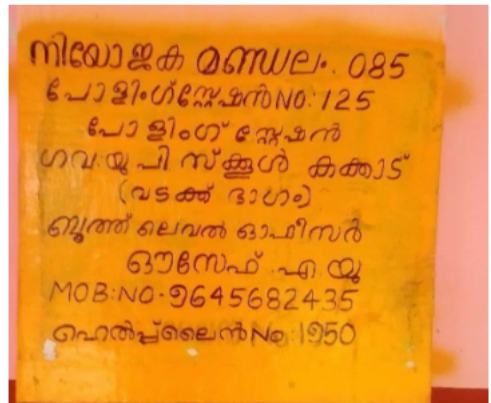 നിയോജക മണ്ഡലം. 085
പോളിംഗ്സ്റ്റേഷൻNO:125
പോളിംഗ് സ്റ്റേഷൻ
ഗവ:യു പി സ്ക്കൂൾ കക്കാട്
(വടക്ക് ഭാഗം)
ബൂത്ത് ലെവൽ ഓഫീസർ
ഔസേഫ് .എ.യു
MOB:NO-9645682435
ഹെൽപ്പ്ലൈൻNo:1950